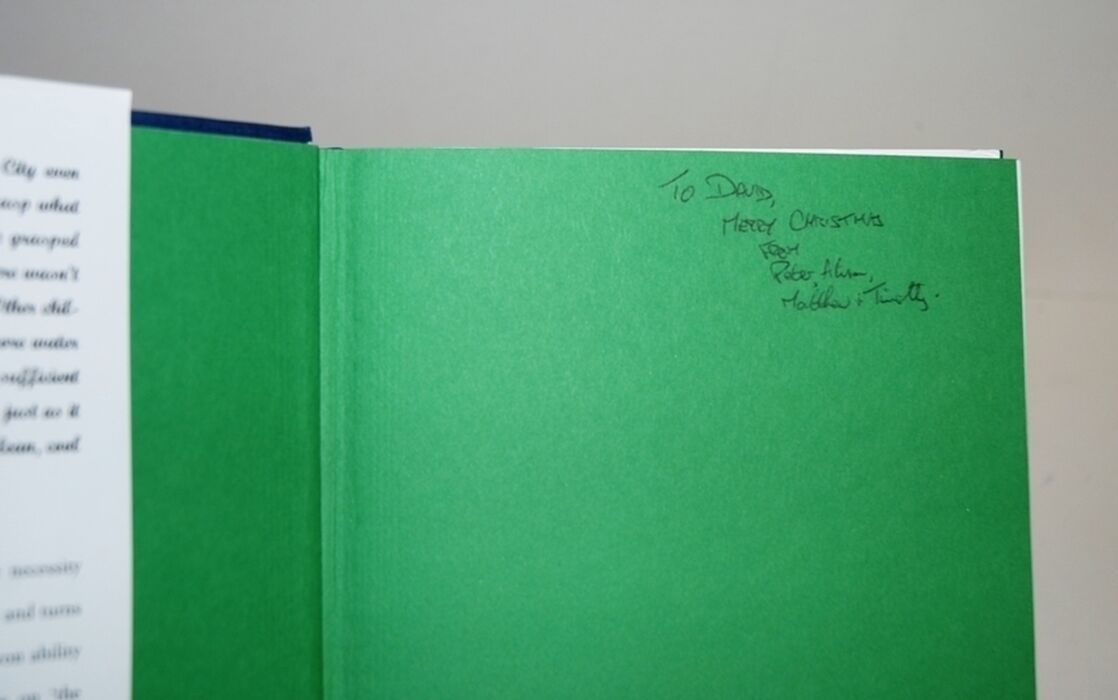 City even
what
grasped
wasn't
Other chil-
under
sufficient
just as it
clean, cool
necessity
and turns
ability
on 'the
TO DAVID,
MERRY CHRISTMAS
FROM
Peter, Alison,
Matthew + Timothy.